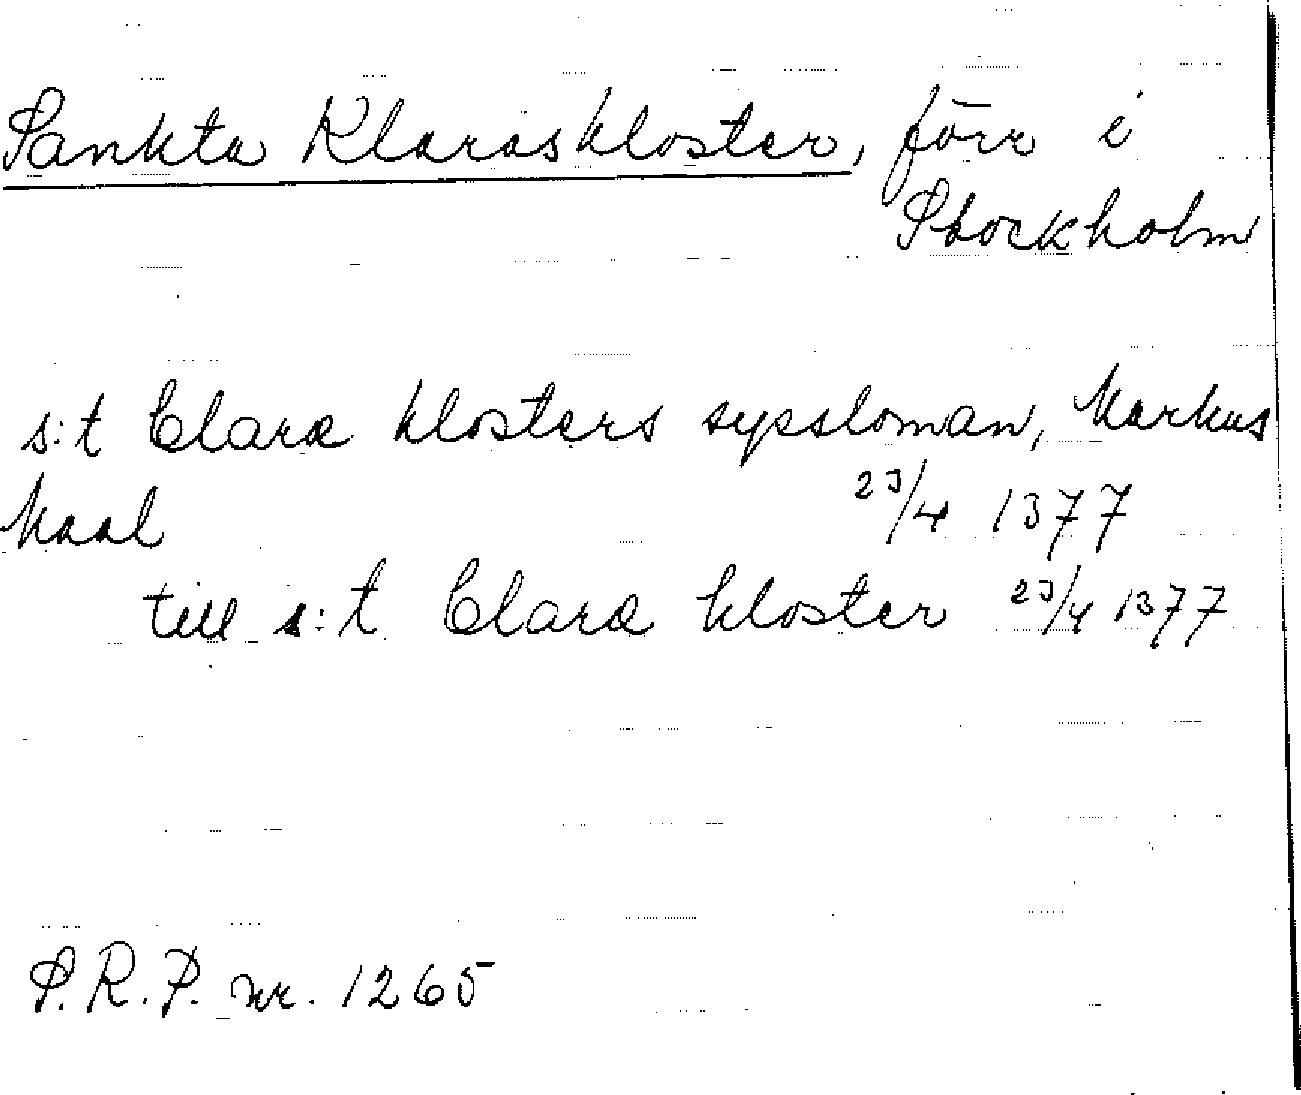 Sankta Klaraskloster, förr i
Stockholm
s:t Claræ klosters sypsloman, Markus
Maal 23/4 1377
till s:t Claræ kloster 23/4 1377
S.R.P. nr. 1265